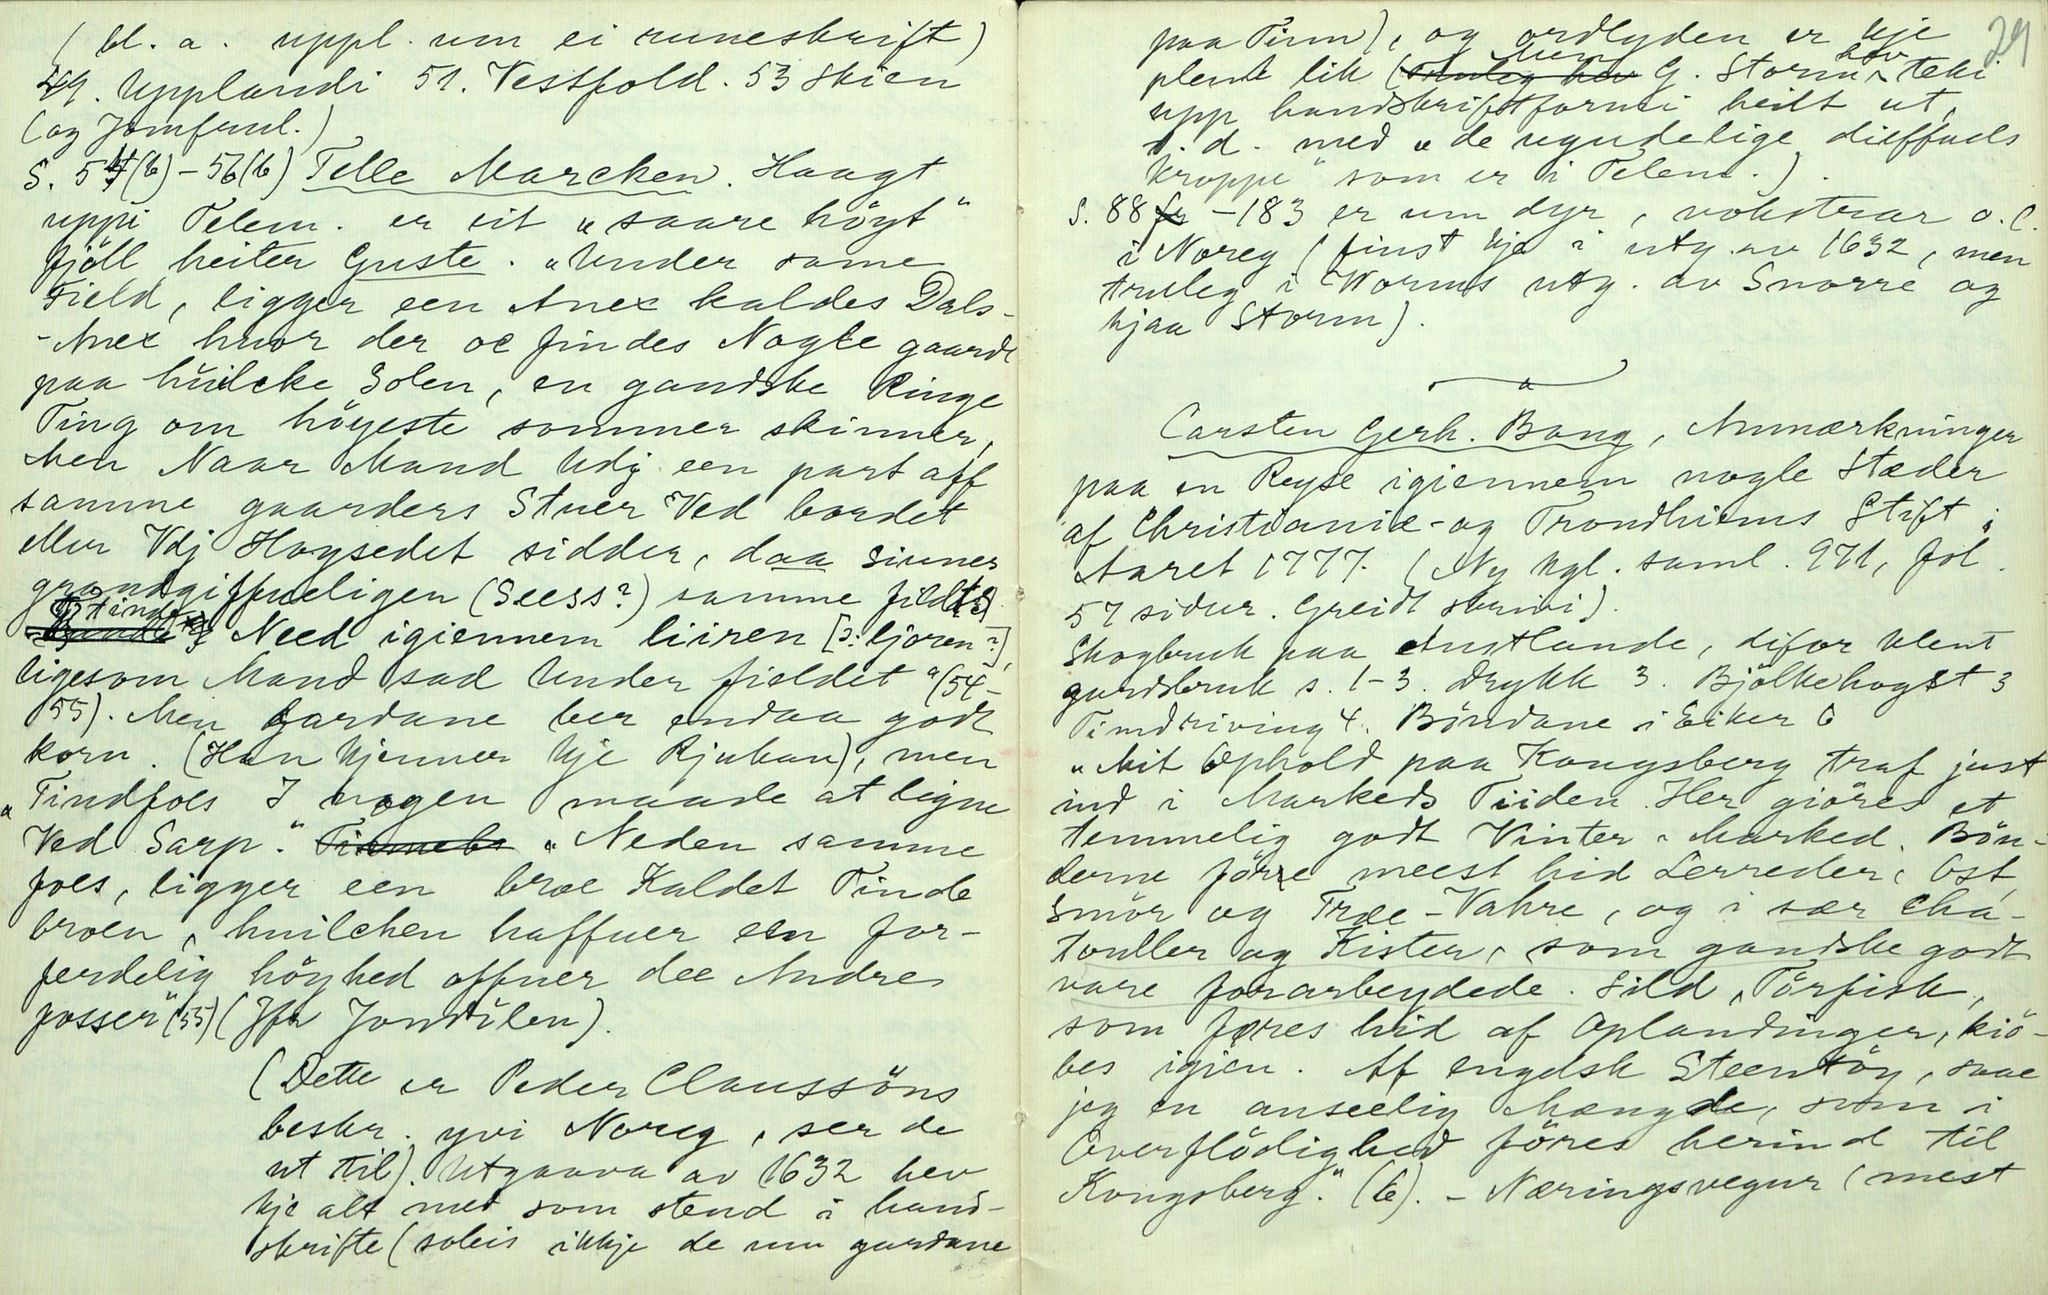 ( bl. a. uppl. um ei runeskrift)
49. Upplandi 51. Vestfold. 53 Skien
(og Jomfrul.)
S. 54(b) - 56(b) Telle Marcken. Haagt
uppi Telem. er eit „saare höyt"
fjöll heiter Guste. „Under same
Field, ligger een Anex kaldes Dals-
-Anex huor der oc findes Nogle gaarde
paa huilcke Solen, en gandske Ringe
Ting om höyeste sommer skinner,
Men Naar Mand Udj een part aff
samme gaarders Stuer Ved bordet
eller Vdj Høysedet sidder, daa siunes
grandgiffueligen (Seess?) samme field(ts)
Tinde Need igiennem liiren [ɔ: ljoren?],
ligesom Mand sad Under fieldet" (54-
55). Men gardane ber endaa godt
korn. (Han kjenner kje Rjukan), men
„Tindfoes I nogen maade at ligne
Ved Sarp." „Neden samme
foes, ligger een broe Kaldet Tinde
broen, huilchen haffuer een for-
ferdelig höyhed offuer dee Andre
fosser" (55) (Jfr Jondölen).
(Dette er Peder Claussöns
beskr. yvi Noreg, ser de
ut til). Utgaava av 1632 hev
kje alt med som stend i hand-
skrifte (soleis ikkje de um gardane
29
paa Tinn), og ordlyden er kje
plent lik (men G. Storm hev teki
upp handskriftformi heilt ut,
t. d. med „de ugudelige dieffuels
kroppe" som er i Telem.).
S. 88 - 183 er um dyr, vokstrar o. l.
i Noreg (finst kje i utg. av 1632, men
truleg i Worms utg. av Snorre og
hjaa Storm).
Carsten Gerh. Bang, Anmærkninger
paa en Reyse igiennem nogle Stæder
af Christianie- og Trondhiems Stift i
Aaret 1777. (Ny kgl. saml. 971, fol.
57 sidur. Greidt skrivi).
Skogbruk paa Austlande, difor klent
gardsbruk s. 1-3. Drykk 3. Bjölkehogst 3
Timdriving 4. Böndane i Eiker 6
„Mit Ophold paa Kongsberg traf just
ind i Markeds Tiiden. Her giöres et
temmelig godt Vinter-Marked. Bön-
derne före meest hid Lerreder, Ost,
Smör og Træ-Vahre, og i sær Cha-
touller og Kister, som gandske godt
vare forarbeydede. Sild, Törfisk,
som föres hid af Oplandinger, kiö-
bes igien. Af engelsk Steentöy, saae
jeg en anseelig Mængde, som i
Overflödighed föres herind til
Kongsberg." (6). - Næringsvegur (mest